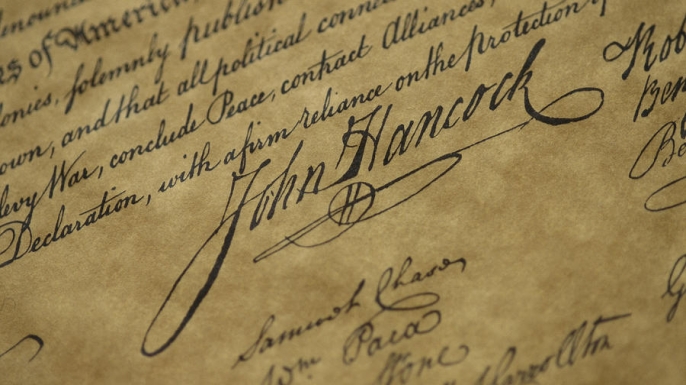 s of America,
onies, solemnly publish
own, and that all political connec
levy War, conclude Peace, contract Alliances,
Declaration, with a firm reliance on the protection
John Hancock
Rob
Ben
Be
Samuel Chase
Wm Paca